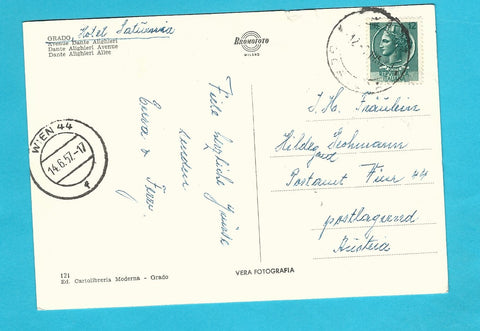 GRADO, Hotel Saturnia
Avenue Dante Alighieri
Dante Alighieri Avenue
Dante Alighieri Allee
BROMOFOTO
MILANO
12
Viele herzliche Grüsse
senden
WIEN 44
14.6.57.-17
I. H. Fräulein
Hildegard Grohmann
Postamt Wien 44
postlagernd
Austria
121
Ed. Cartolibreria Moderna - Grado
VERA FOTOGRAFIA